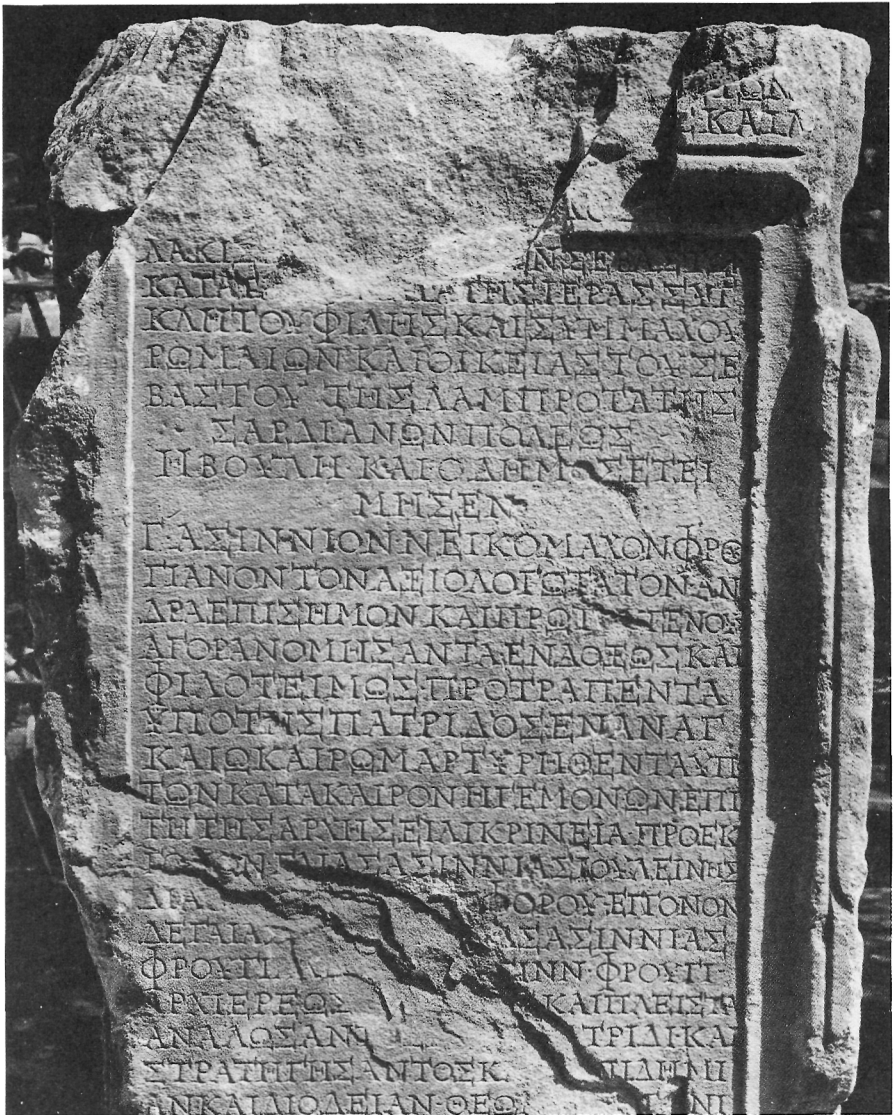 ΚΑΙ
ΛΑΚΙΣ Ν ΣΕΒΑΣΤΩ
ΚΑΤΑ ΤΗΣ ΙΕΡΑΣ ΣΥΓ
ΚΛΗΤΟΥ ΦΙΛΗΣ ΚΑΙ ΣΥΜΜΑΧΟΥ
ΡΩΜΑΙΩΝ ΚΑΙ ΟΙΚΕΙΑΣ ΤΟΥ ΣΕ
ΒΑΣΤΟΥ ΤΗΣ ΛΑΜΠΡΟΤΑΤΗΣ
ΣΑΡΔΙΑΝΩΝ ΠΟΛΕΩΣ
Η ΒΟΥΛΗ ΚΑΙ Ο ΔΗΜΟΣ ΕΤΕΙ
ΜΗΣΕΝ
Γ ΑΣΙΝΝΙΟΝ ΝΕΙΚΟΜΑΧΟΝ ΦΡΟΥ
ΓΙΑΝΟΝ ΤΟΝ ΑΞΙΟΛΟΓΩΤΑΤΟΝ ΑΝ
ΔΡΑ ΕΠΙΣΗΜΟΝ ΚΑΙ ΠΡΩΤΕΥΟΝ
ΑΓΟΡΑΝΟΜΗΣΑΝΤΑ ΕΝΔΟΞΩΣ ΚΑΙ
ΦΙΛΟΤΕΙΜΩΣ ΠΡΟΤΡΑΠΕΝΤΑ
ΥΠΟ ΤΗΣ ΠΑΤΡΙΔΟΣ ΕΝ ΑΝΑΓ
ΚΑΙΩ ΚΑΙΡΩ ΜΑΡΤΥΡΗΘΕΝΤΑ ΥΠ
ΤΩΝ ΚΑΤΑ ΚΑΙΡΟΝ ΗΓΕΜΟΝΩΝ ΕΠΙ
ΤΗ ΤΗΣ ΑΡΧΗΣ ΕΙΛΙΚΡΙΝΕΙΑ ΠΡΟΕΚ
ΓΟΝΟΝ ΓΑΙΑΣ ΑΣΙΝΝΙΑΣ ΙΟΥΛΕΙΝΗΣ
ΔΙΑ ΦΟΡΟΥ ΕΓΓΟΝΟΝ
ΔΕ ΓΑΙΑΣ ΑΣΙΝΝΙΑΣ
ΦΡΟΥΓΙ ΣΙΝΝ ΦΡΟΥΓΙ
ΑΡΧΙΕΡΕΩΣ ΚΑΙ ΠΛΕΙΣΤΑ
ΑΝΑΛΩΣΑΝ ΤΡΙΔΙ ΚΑΙ
ΣΤΡΑΤΗΓΗΣΑΝΤΟΣ Κ ΠΙΔΗΜΙ
ΑΝ ΚΑΙ ΔΙΟΔΕΙΑΝ ΘΕΟΥ